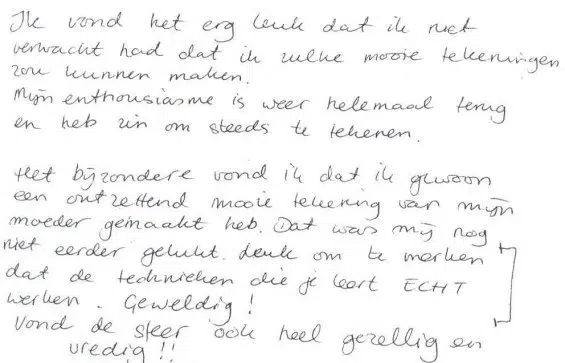 Ik vond het erg leuk dat ik niet
verwacht had dat ik zulke mooie tekeningen
zou kunnen maken.
Mijn enthousiasme is weer helemaal terug
en heb zin om steeds te tekenen.
Het bijzondere vond ik dat ik gewoon
een ontzettend mooie tekening van mijn
moeder gemaakt heb. Dat was mij nog
niet eerder gelukt. Leuk om te merken
dat de technieken die je leert ECHT
werken. Geweldig!
Vond de sfeer ook heel gezellig en
vredig!!